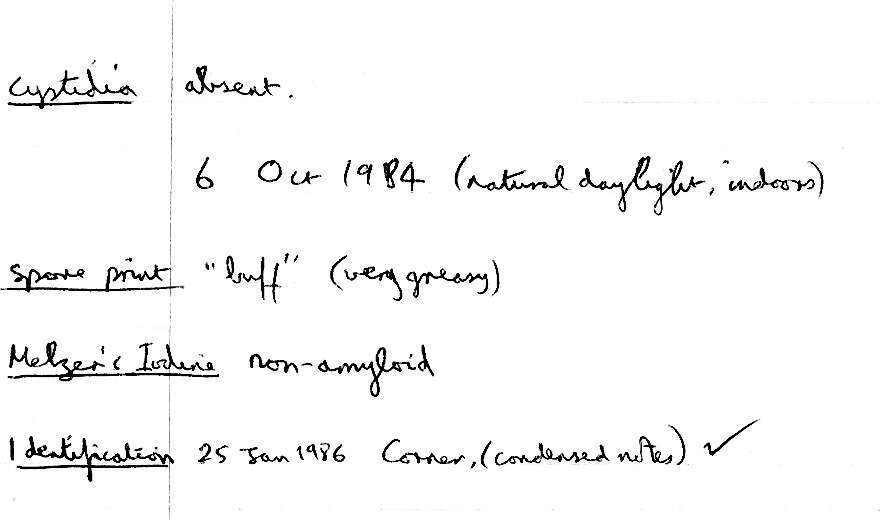 Cystidia absent.
6 Oct 1984 (natural daylight, indoors)
Spore print "buff" (very greasy)
Melzer's Iodine non-amyloid
Identification 25 Jan 1986 Corner, (condensed notes) ✓